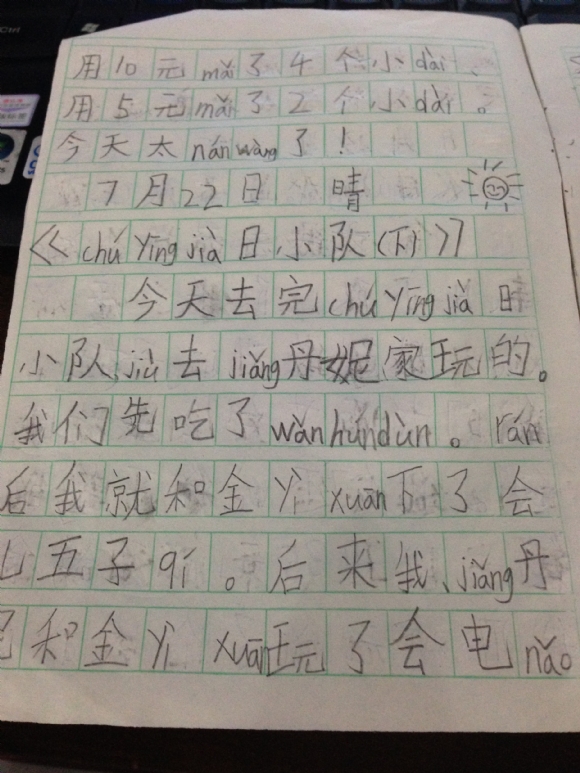 用10元mǎi了4个小dài、
用5元mǎi了2个小dài。
今天太nánwàng了！
7月22日 晴
《chú yīng jià日小队(下)》
今天去完chú yīng jià日
小队,jiù去jiǎng丹妮家玩的。
我们先吃了wǎn húndùn。rán
后我就和金yì xuān下了会
五子qí。后来我、jiǎng丹
和金yì xuān玩了会电nǎo